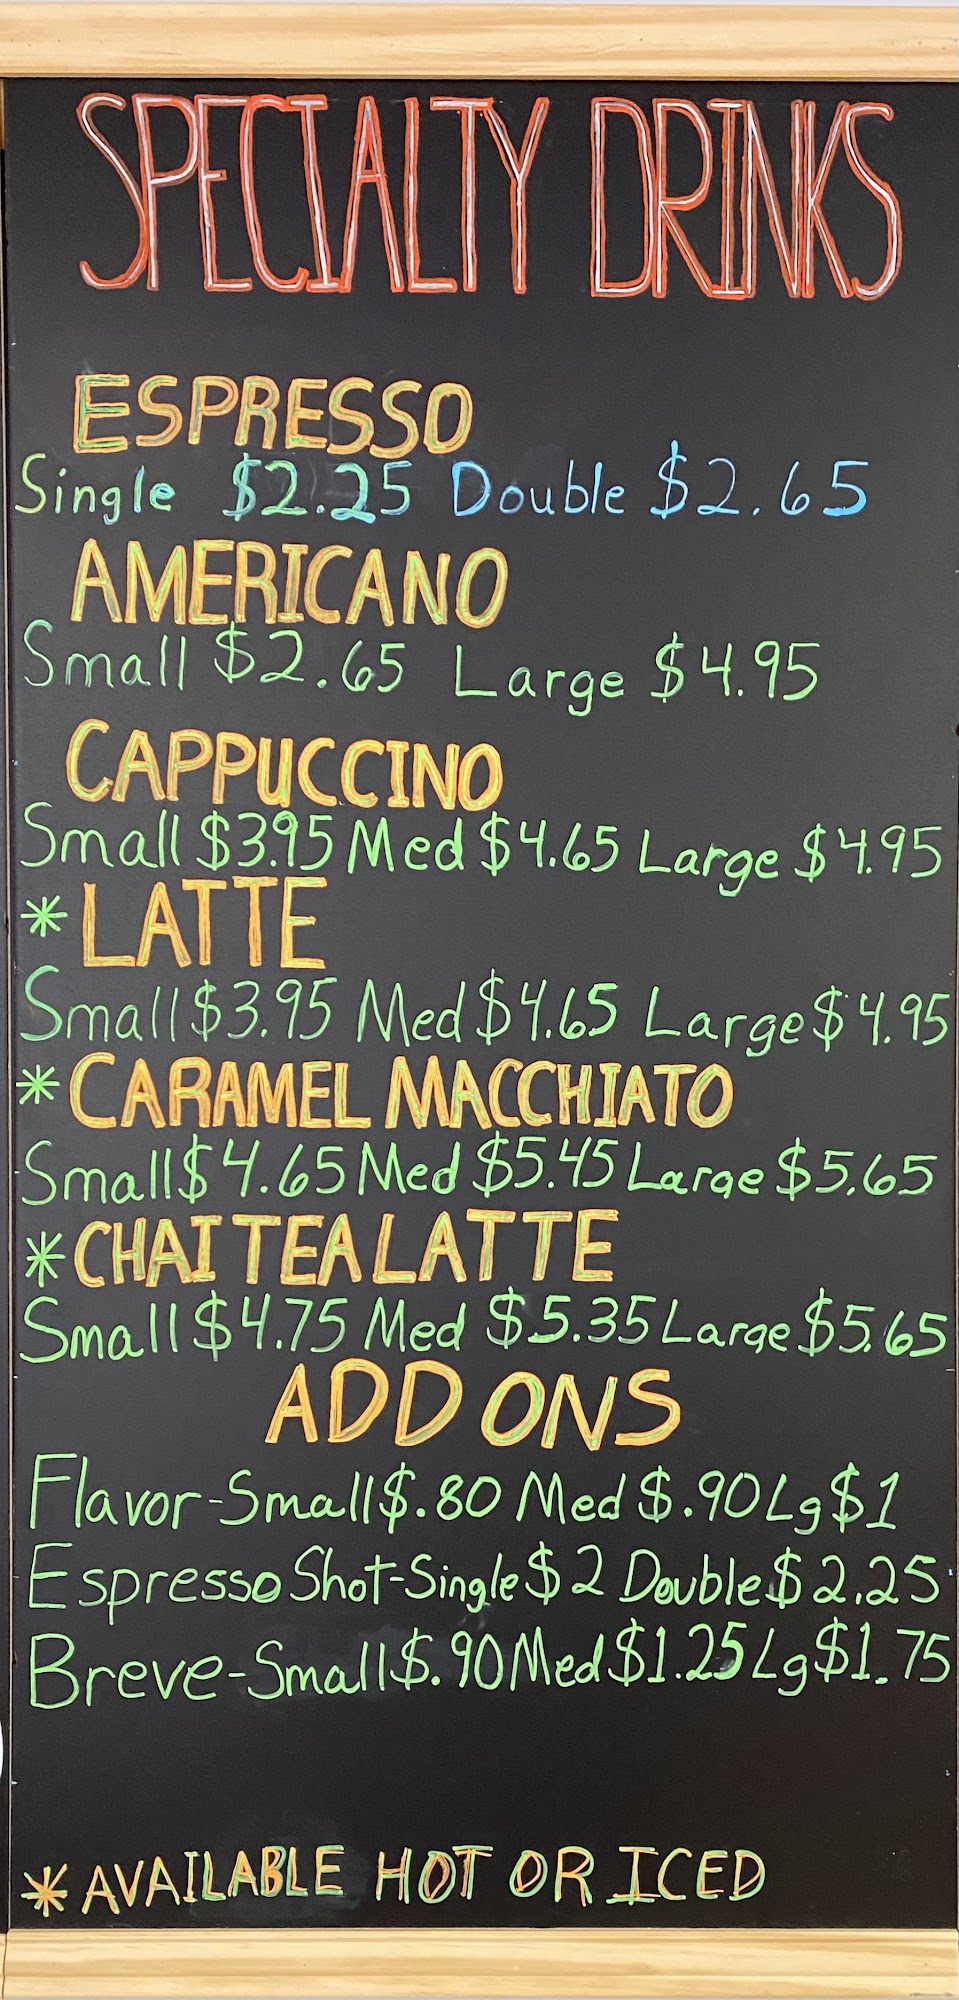 SPECIALTY DRINKS
ESPRESSO
Single $2.25 Double $2.65
AMERICANO
Small $2.65 Large $4.95
CAPPUCCINO
Small $3.95 Med $4.65 Large $4.95
* LATTE
Small $3.95 Med $4.65 Large $4.95
* CARAMEL MACCHIATO
Small $4.65 Med $5.45 Large $5.65
* CHAI TEA LATTE
Small $4.75 Med $5.35 Large $5.65
ADD ONS
Flavor-Small $.80 Med $.90 Lg $1
Espresso Shot-Single $2 Double $2.25
Breve-Small $.90 Med $1.25 Lg $1.75
* AVAILABLE HOT OR ICED